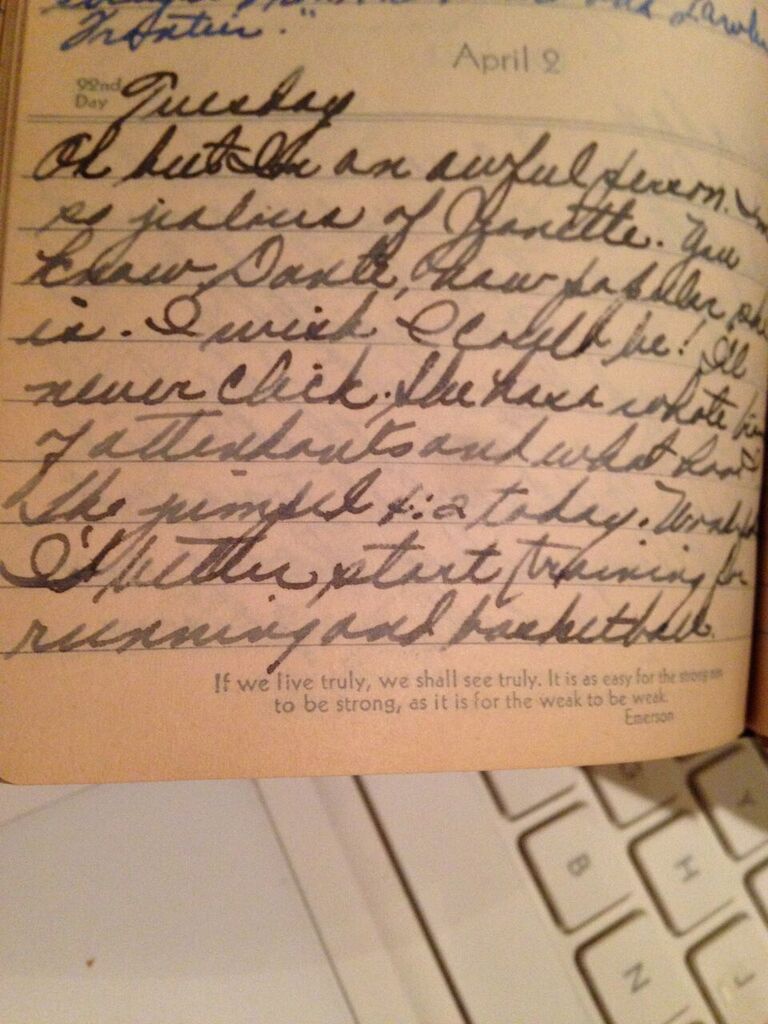 Frontier."
April 2
92nd
Day
Tuesday
Oh but I'm an awful person. I'm
so jealous of Jeanette. You
know, Dante, how popular she
is. I wish I could be! I'll
never click. She has a whole
of attendants and what have I
She jumped today.
I'd better start training for
running and basketball.
If we live truly, we shall see truly. It is as easy for the strong man
to be strong, as it is for the weak to be weak.
Emerson
B
H
N
Y
J